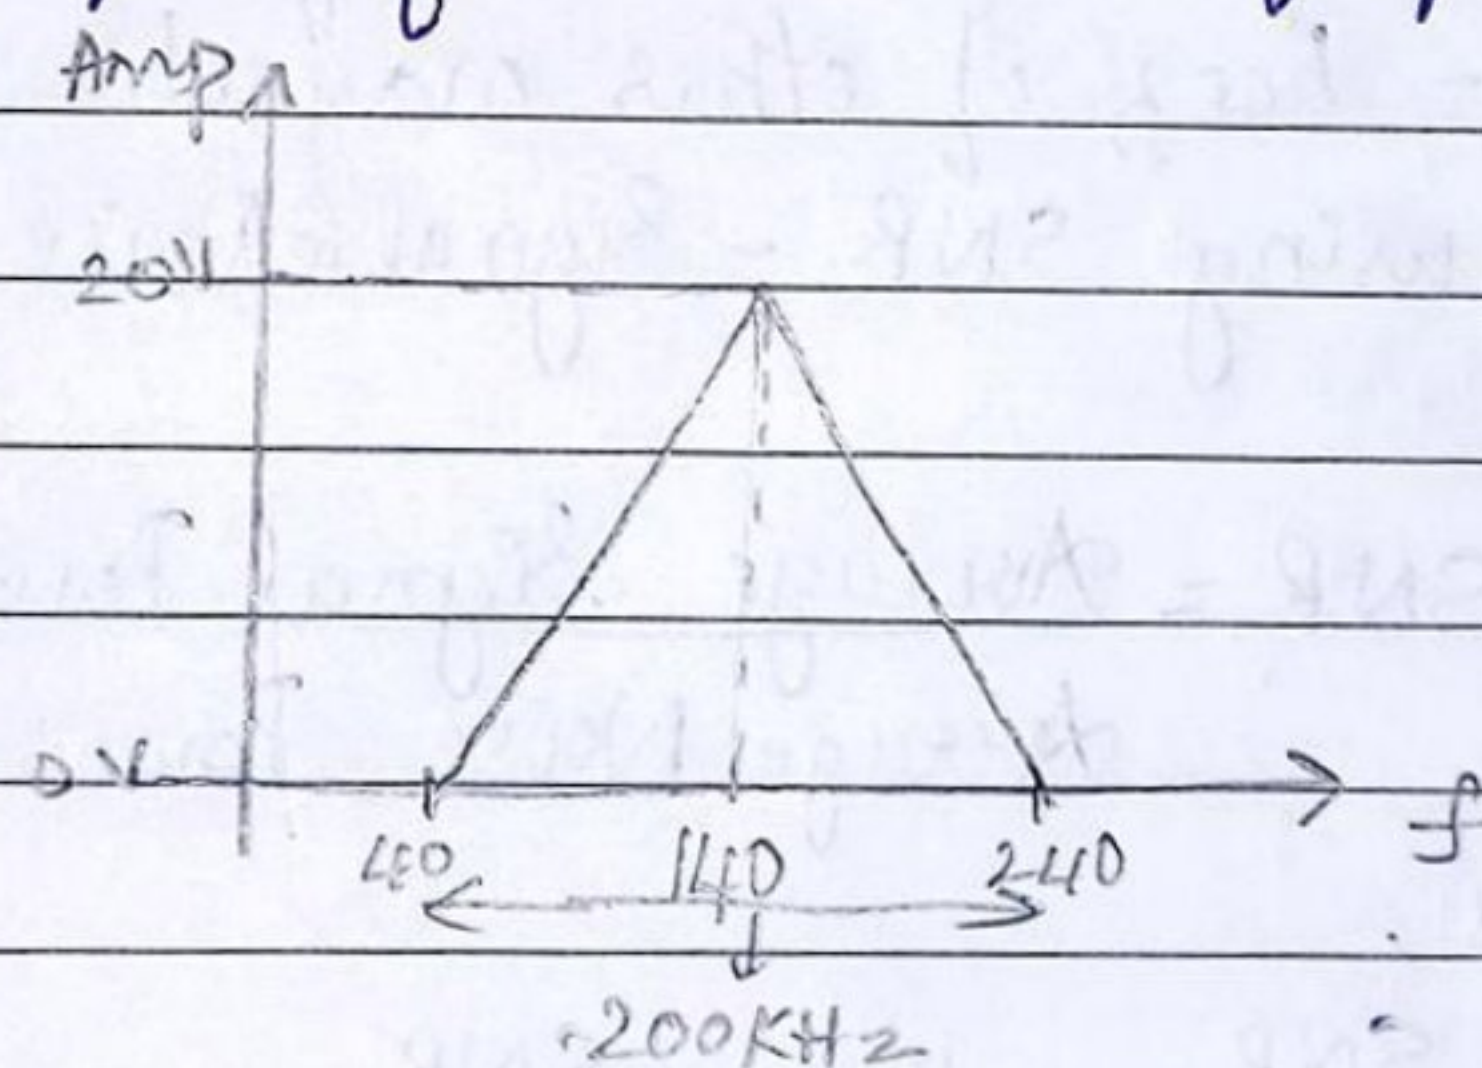 Amp
20V
0V
40 140 240
f
200KHz